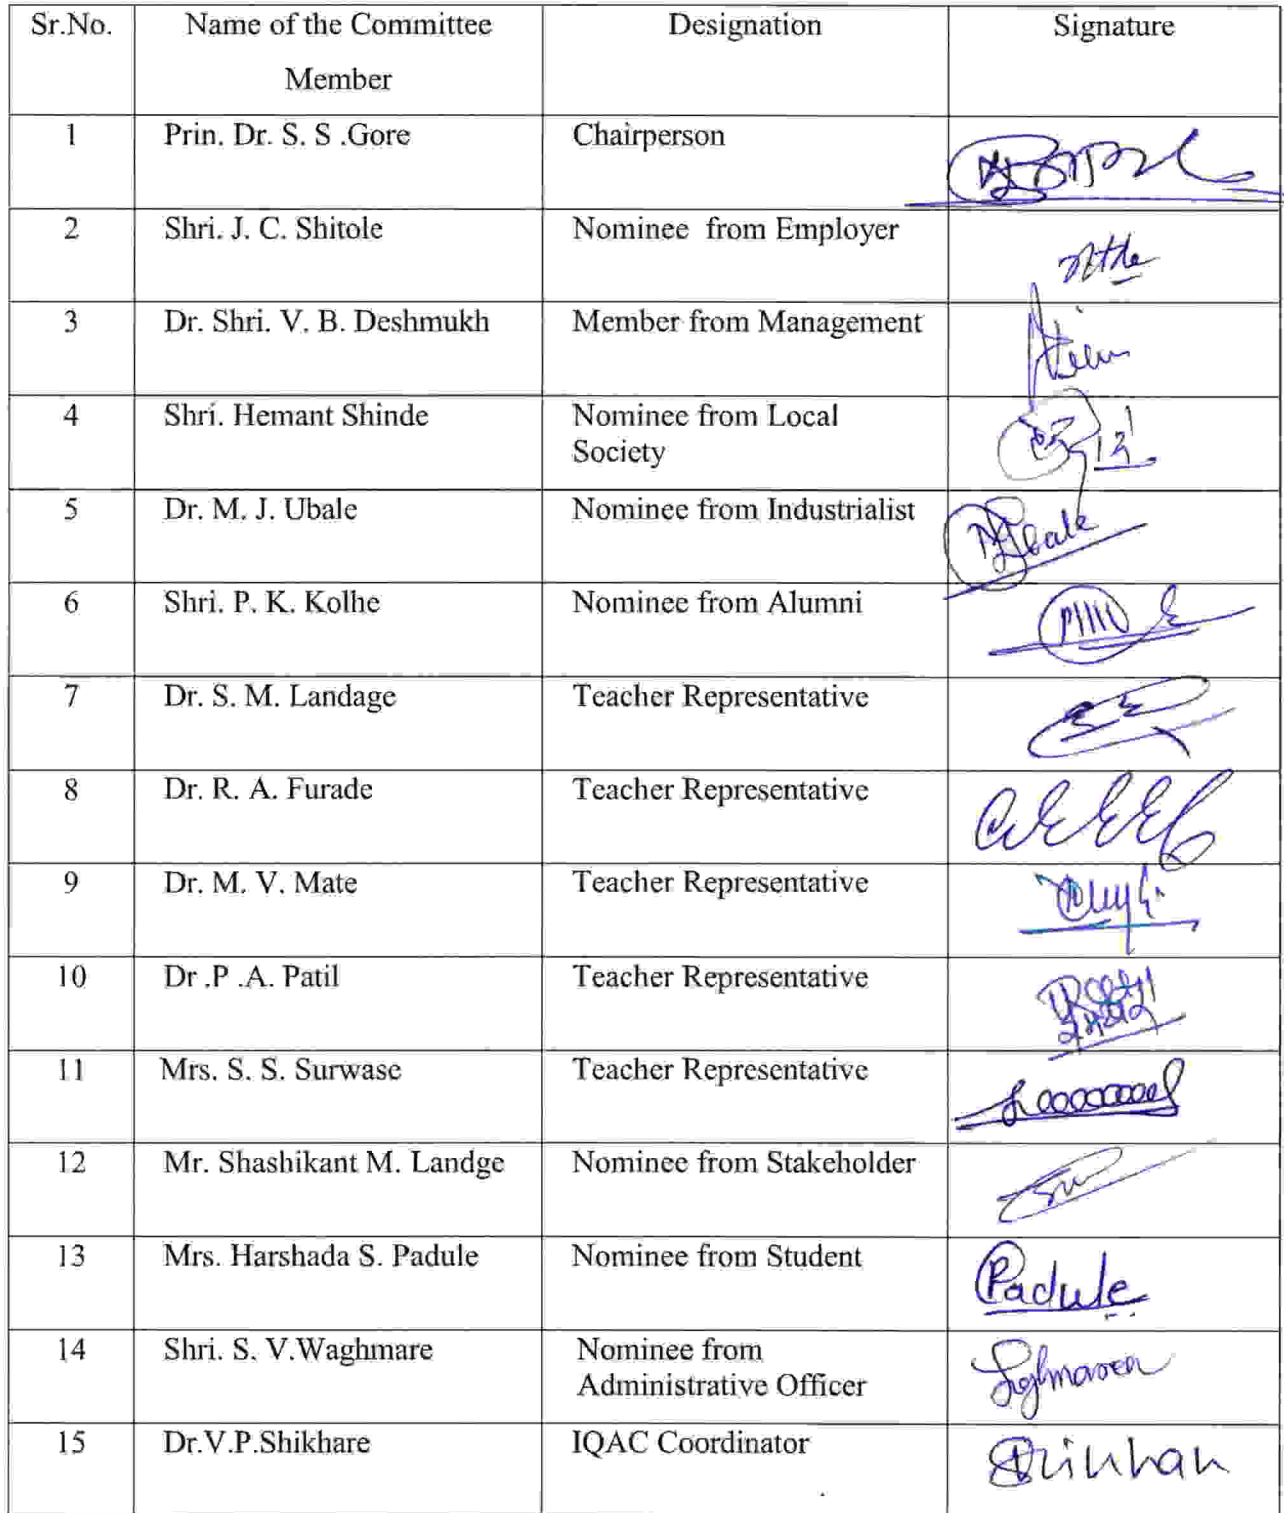 Sr.No. Name of the Committee Designation Signature
Member
1 Prin. Dr. S. S .Gore Chairperson
2 Shri. J. C. Shitole Nominee from Employer
3 Dr. Shri. V. B. Deshmukh Member from Management
4 Shri. Hemant Shinde Nominee from Local
Society
5 Dr. M. J. Ubale Nominee from Industrialist
6 Shri. P. K. Kolhe Nominee from Alumni
7 Dr. S. M. Landage Teacher Representative
8 Dr. R. A. Furade Teacher Representative
9 Dr. M. V. Mate Teacher Representative
10 Dr .P .A. Patil Teacher Representative
11 Mrs. S. S. Surwase Teacher Representative
12 Mr. Shashikant M. Landge Nominee from Stakeholder
13 Mrs. Harshada S. Padule Nominee from Student Padule
14 Shri. S. V.Waghmare Nominee from
Administrative Officer
15 Dr.V.P.Shikhare IQAC Coordinator